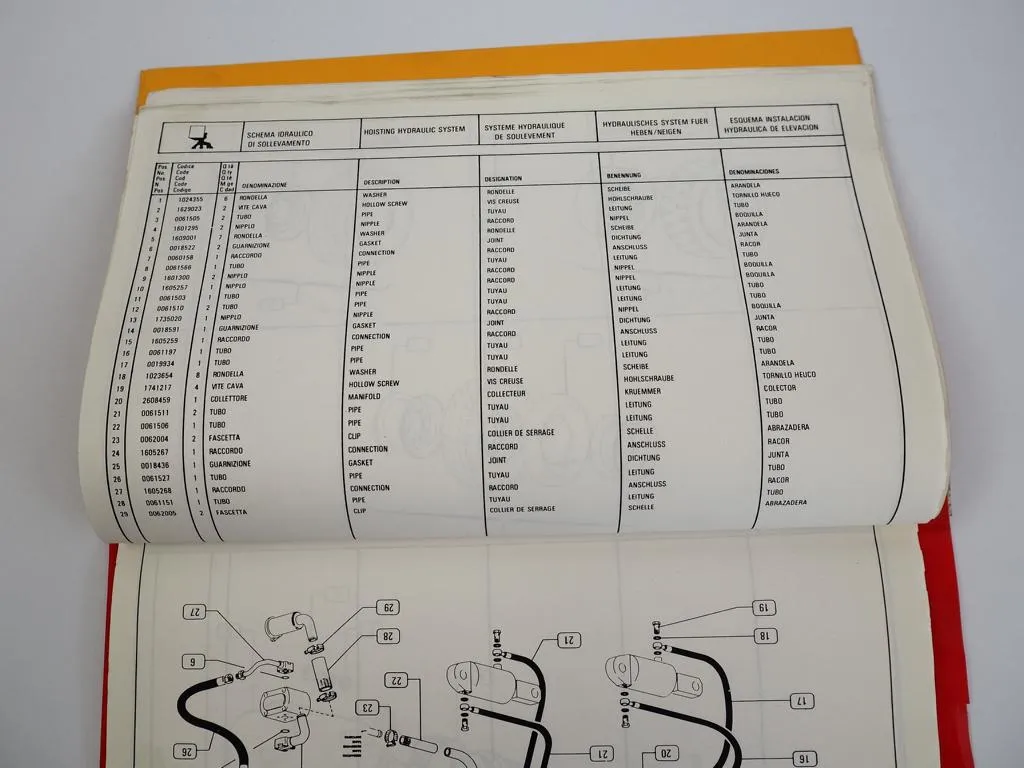 SCHEMA IDRAULICO DI SOLLEVAMENTO
HOISTING HYDRAULIC SYSTEM
SYSTEME HYDRAULIQUE DE SOULEVEMENT
HYDRAULISCHES SYSTEM FUER HEBEN/NEIGEN
ESQUEMA INSTALACION HYDRAULICA DE ELEVACION
Pos Codice Q.tà
No Code Q.ty
Pos Cod Q.té
N Code M ge
Pos Codigo C dad
DENOMINAZIONE DESCRIPTION DESIGNATION BENENNUNG DENOMINACIONES
1 1024355 6 RONDELLA WASHER RONDELLE SCHEIBE ARANDELA
2 1629023 2 VITE CAVA HOLLOW SCREW VIS CREUSE HOHLSCHRAUBE TORNILLO HUECO
3 0061505 2 TUBO PIPE TUYAU LEITUNG TUBO
4 1601295 2 NIPPLO NIPPLE RACCORD NIPPEL BOQUILLA
5 1609001 7 RONDELLA WASHER RONDELLE SCHEIBE ARANDELA
6 0018522 2 GUARNIZIONE GASKET JOINT DICHTUNG JUNTA
7 0060158 1 RACCORDO CONNECTION RACCORD ANSCHLUSS RACOR
8 0061566 1 TUBO PIPE TUYAU LEITUNG TUBO
9 1601300 2 NIPPLO NIPPLE RACCORD NIPPEL BOQUILLA
10 1605257 1 NIPPLO NIPPLE RACCORD NIPPEL BOQUILLA
11 0061503 1 TUBO PIPE TUYAU LEITUNG TUBO
12 0061510 2 TUBO PIPE TUYAU LEITUNG TUBO
13 1735020 1 NIPPLO NIPPLE RACCORD NIPPEL BOQUILLA
14 0018591 1 GUARNIZIONE GASKET JOINT DICHTUNG JUNTA
15 1605259 1 RACCORDO CONNECTION RACCORD ANSCHLUSS RACOR
16 0061197 1 TUBO PIPE TUYAU LEITUNG TUBO
17 0019934 1 TUBO PIPE TUYAU LEITUNG TUBO
18 1023654 8 RONDELLA WASHER RONDELLE SCHEIBE ARANDELA
19 1741217 4 VITE CAVA HOLLOW SCREW VIS CREUSE HOHLSCHRAUBE TORNILLO HEUCO
20 2608459 1 COLLETTORE MANIFOLD COLLECTEUR KRUEMMER COLECTOR
21 0061511 2 TUBO PIPE TUYAU LEITUNG TUBO
22 0061506 1 TUBO PIPE TUYAU LEITUNG TUBO
23 0062004 2 FASCETTA CLIP COLLIER DE SERRAGE SCHELLE ABRAZADERA
24 1605267 1 RACCORDO CONNECTION RACCORD ANSCHLUSS RACOR
25 0018436 1 GUARNIZIONE GASKET JOINT DICHTUNG JUNTA
26 0061527 1 TUBO PIPE TUYAU LEITUNG TUBO
27 1605268 1 RACCORDO CONNECTION RACCORD ANSCHLUSS RACOR
28 0061151 1 TUBO PIPE TUYAU LEITUNG TUBO
29 0062005 2 FASCETTA CLIP COLLIER DE SERRAGE SCHELLE ABRAZADERA
27
29
19
6
28
21
18
22
17
23
26
21
20
16